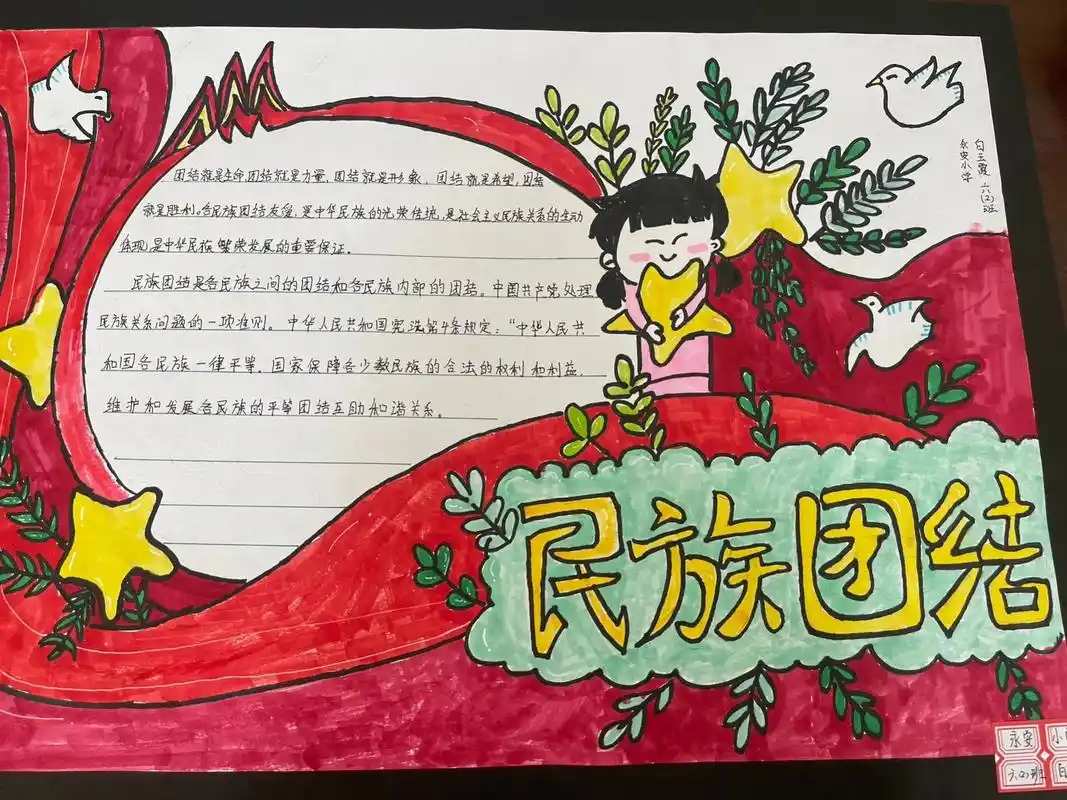 团结就是生命,团结就是力量,团结就是形象,团结就是希望,团结
就是胜利。各民族团结友爱,是中华民族的光荣传统,是社会主义民族关系的生动
体现,是中华民族繁荣发展的重要保证。
民族团结是各民族之间的团结和各民族内部的团结。中国共产党处理
民族关系问题的一项准则。中华人民共和国宪法第4条规定:“中华人民共
和国各民族一律平等。国家保障各少数民族的合法的权利和利益,
维护和发展各民族的平等团结互助和谐关系。
民族团结
永安小学
六(2)班
永安
小
六(2)班
白